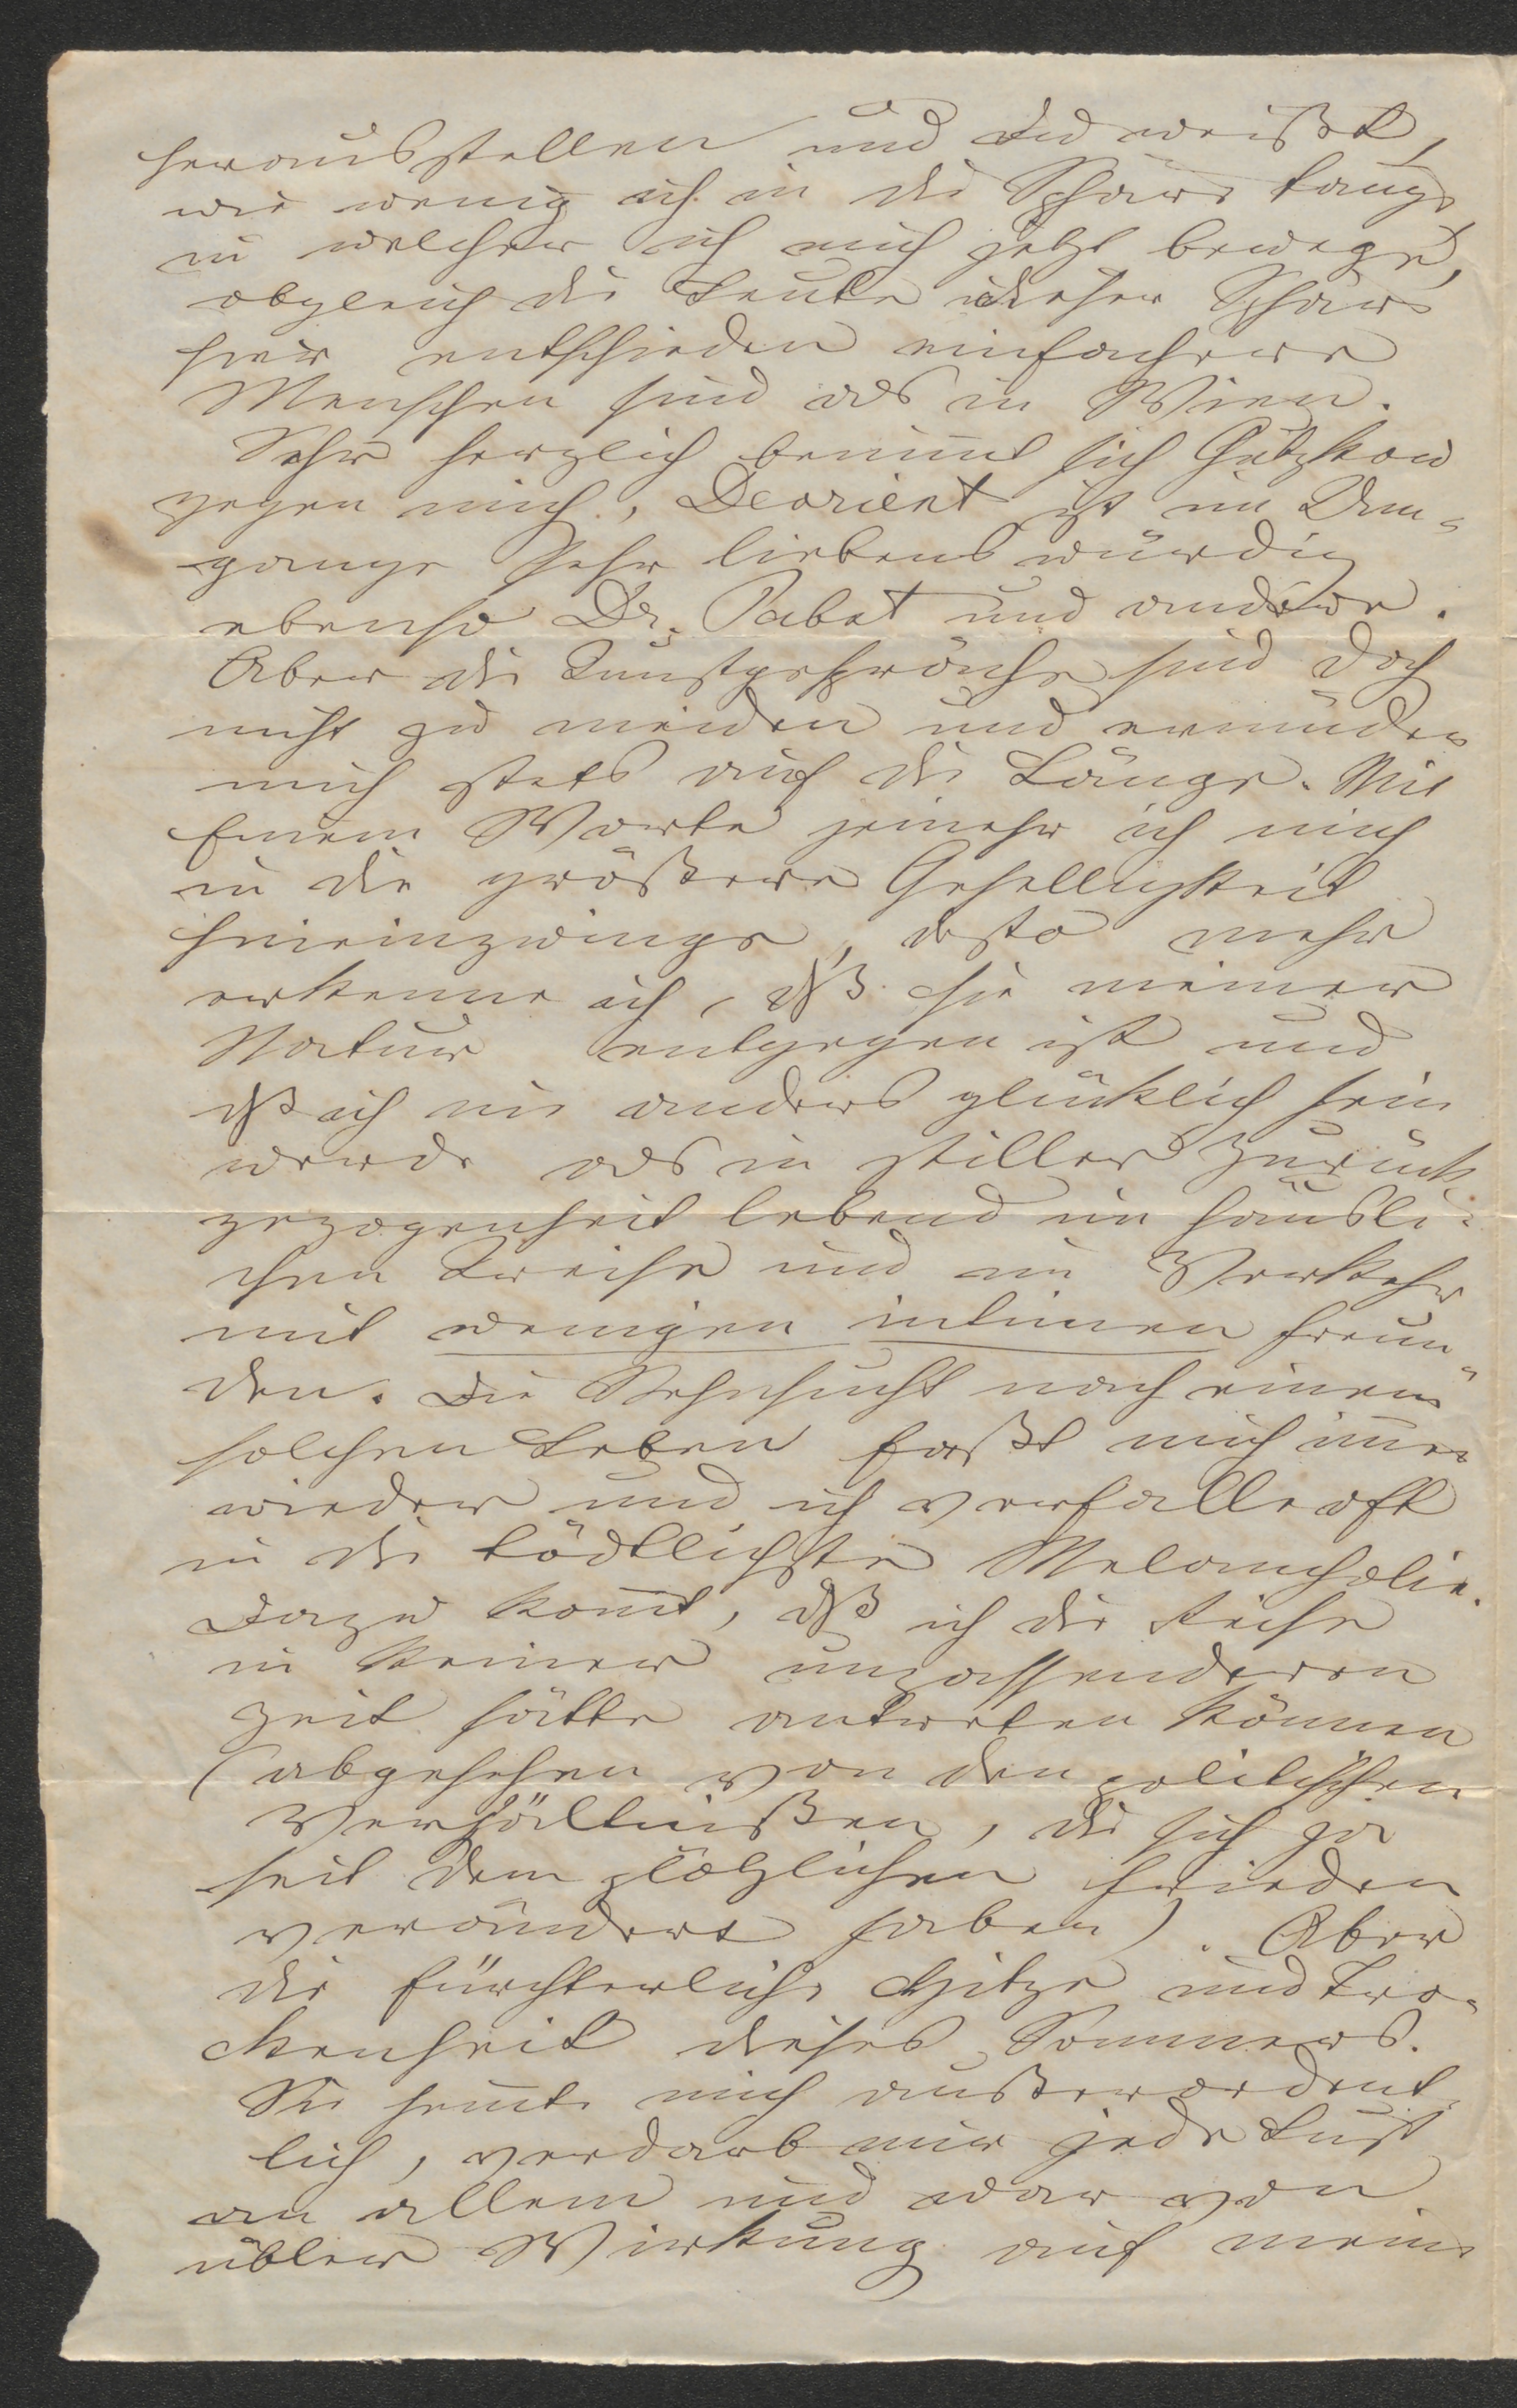 herausstellen und Du weißt,
wie wenig ich in die Sphäre tauge,
in welcher ich mich jetzt bewege,
obgleich die Leute dieser Sphäre
hier entschieden einfachere
Menschen sind als in Wien.
Sehr herzlich benim̅t sich Gutzkow
gegen mich, Devrient ist im Um-
gange sehr liebenswürdig
ebenso Dr. Pabst und andere.
Aber die Kunstgespräche sind doch
nicht zu meiden und ermüden
mich stets auf die Länge. Mit
Einem Worte jemehr ich mich
in die größere Geselligkeit
hineinzwinge, desto mehr
erkenne ich, dß sie meiner
Natur entgegen ist und
dß ich nie anders glücklich sein
werde als in stiller Zurück
gezogenheit lebend im häusli-
chen Kreise und im Verkehr
mit wenigen intimen Freun-
den. Die Sehnsucht nach einem
solchen Leben faßt mich im̅er
wieder und ich verfalle oft
in die tödtlichste Melancholie.
Dazu kom̅t, dß ich die Reise
in keiner unpassenderen
Zeit hätte antreten können
(abgesehen von den politischen
Verhältnißen, die sich ja
seit dem plötzlichen Frieden
verändert haben). Aber
die fürchterliche Hitze und Tro-
ckenheit dieses Sommers.
Sie hem̅te mich außerordent-
lich, verdarb mir jede Lust
an allem und war von
übler Wirkung auf meine